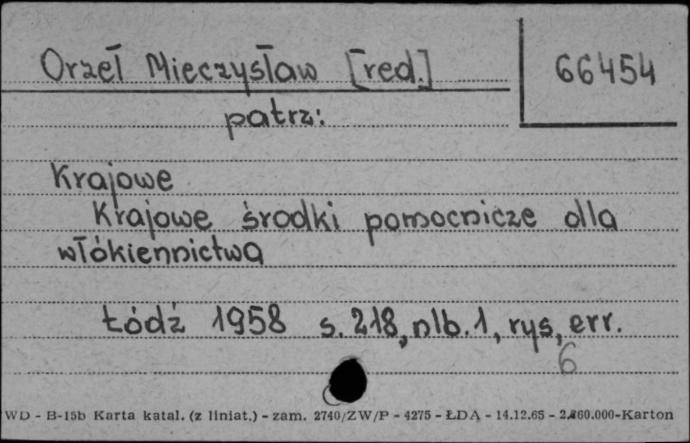 Orzeł Mieczysław [red.]
66454
patrz:
Krajowe
Krajowe środki pomocnicze dla
włókiennictwa
Łódź 1958 s. 218, nlb. 1, rys, err.
6
WD - B-15b Karta katal. (z liniat.) - zam. 2740/ZW/P - 4275 - ŁDA - 14.12.65 - 2.860.000-Karton